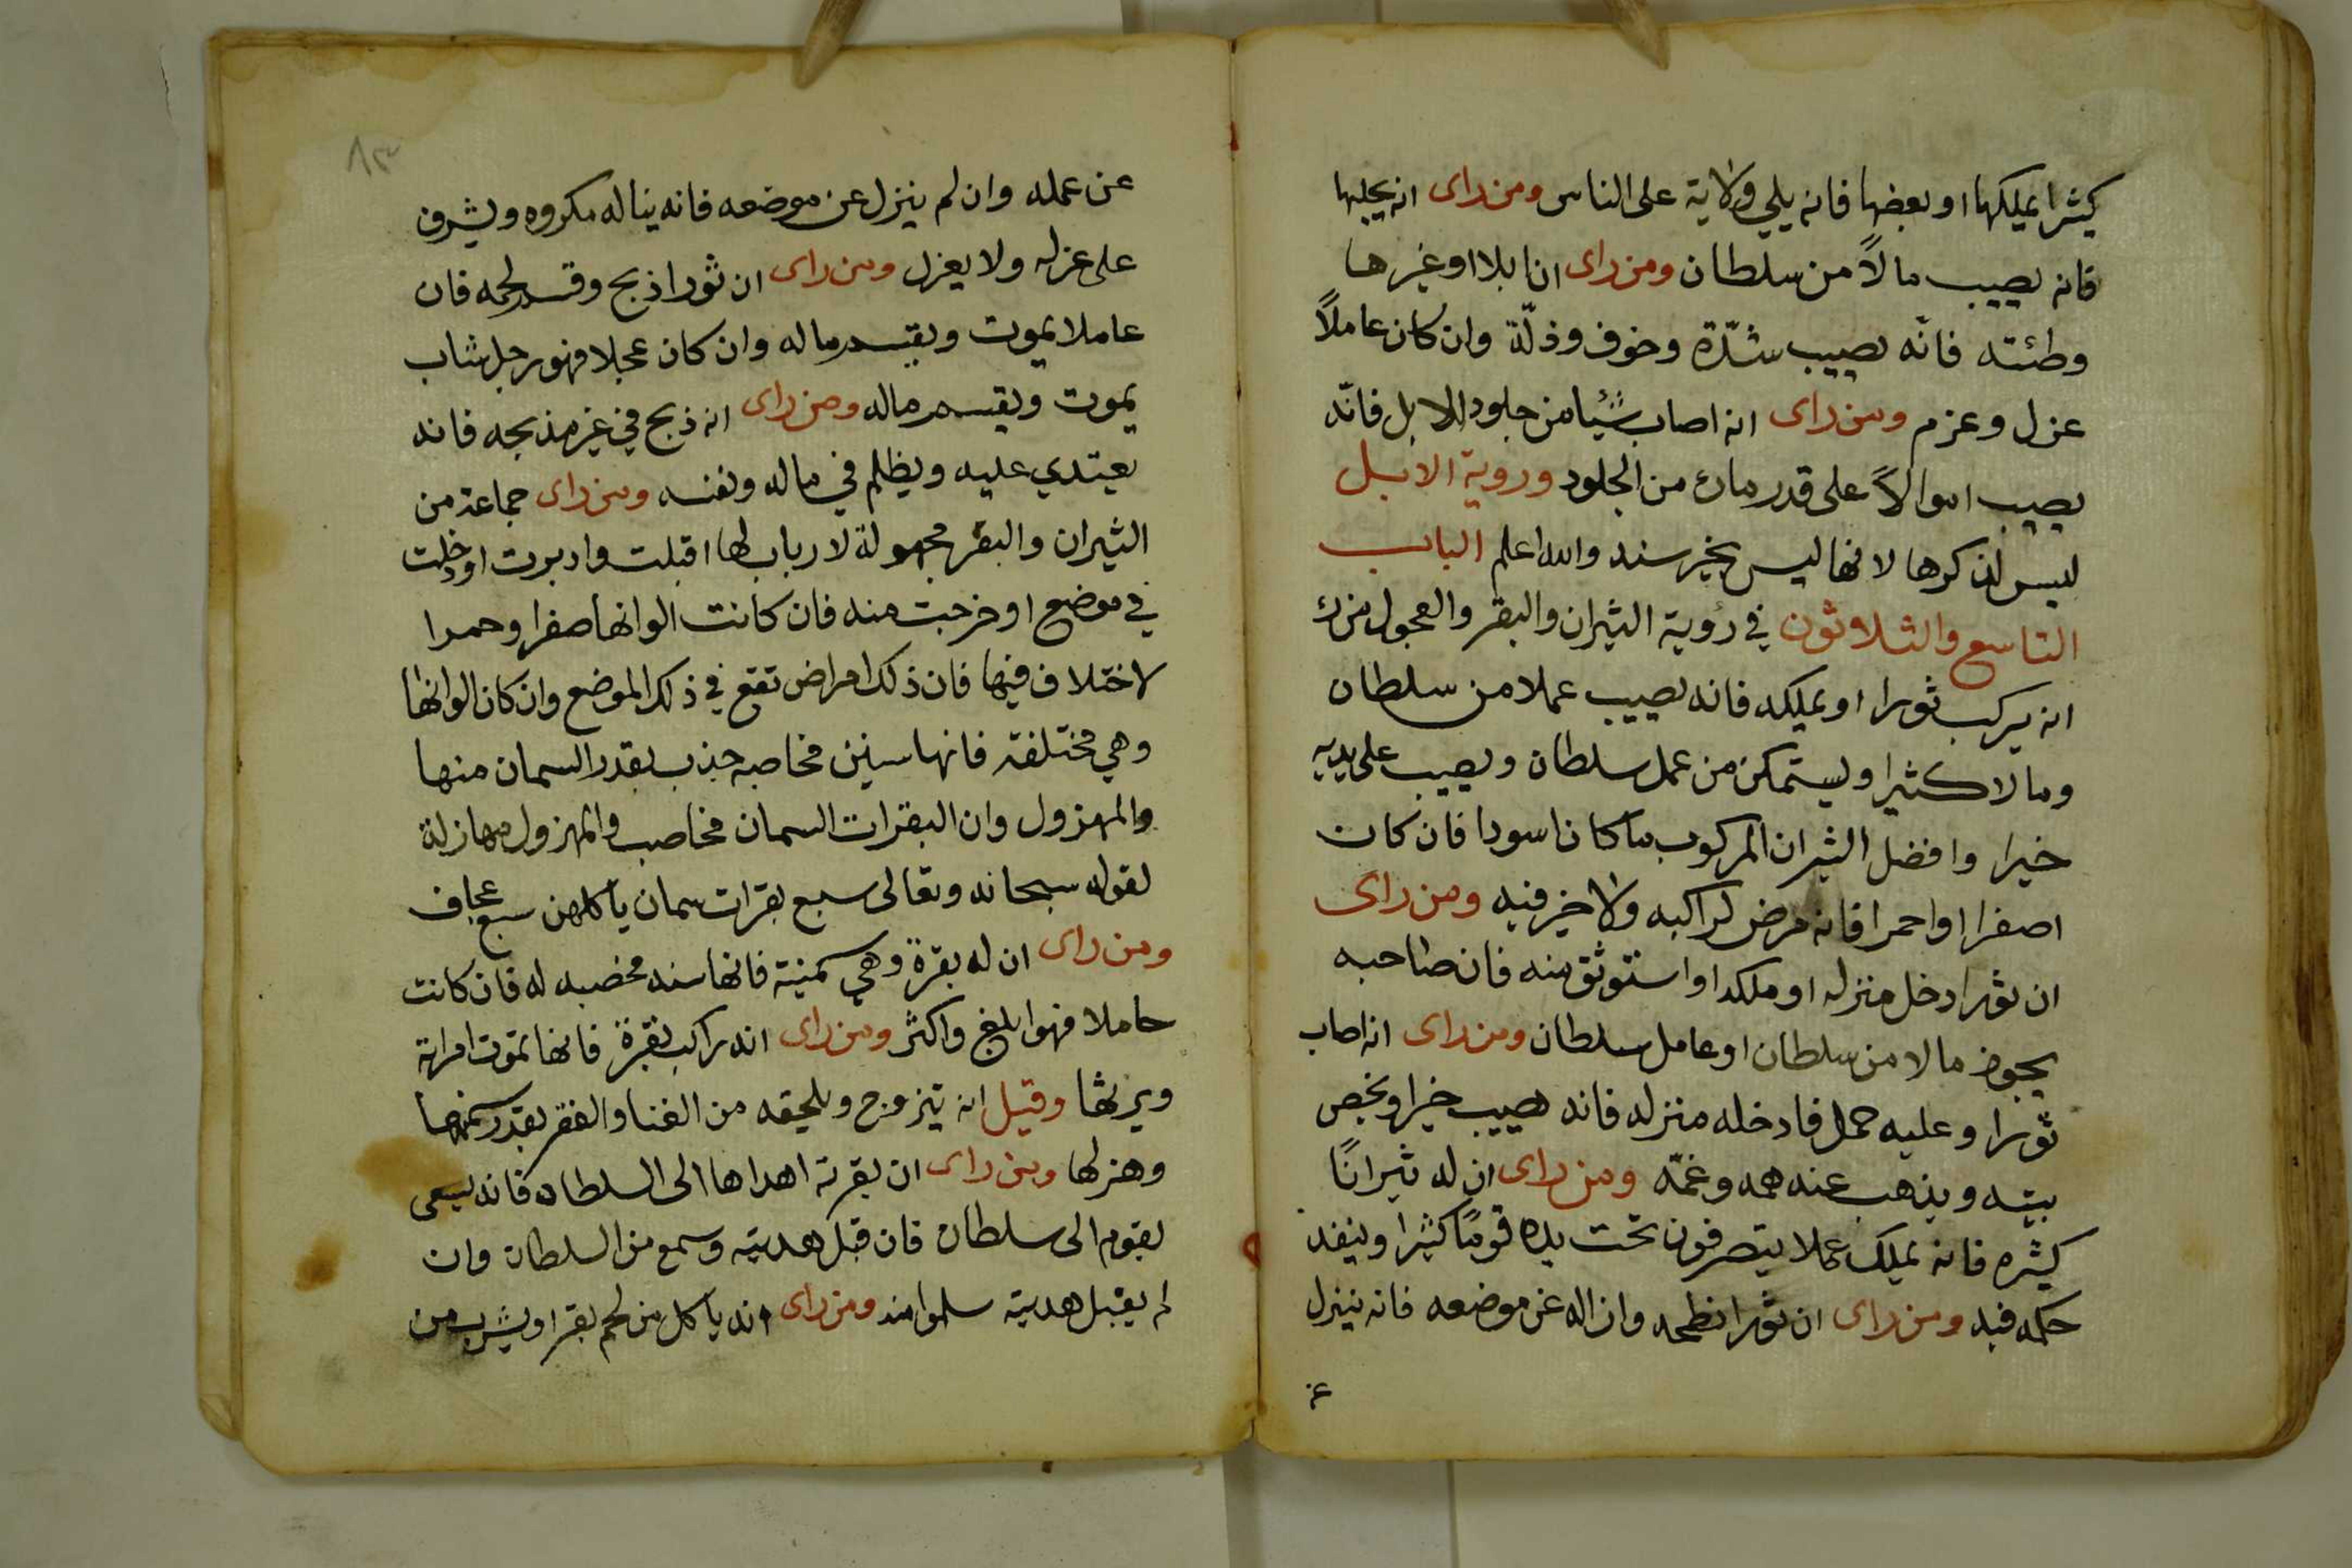 كثيرا يملكها او بعضها فانه يلي ولاية على الناس ومن راى انه يحلبها
فانه يصيب مالاً من سلطان ومن راى ان ابلا او غيرها
وطئته فانّه يصيب شدّة وخوف وذلّة وان كان عاملاً
عزل وعزم ومن راى انه اصاب شيئا من جلود الابل فانّه
يصيب اموالاً على قدر ماراى من الجلود وروية الابل
ليس لذكرها لانها ليس بخير سند والله اعلم الباب
التاسع والثلاثون في رؤية الثيران والبقر والعجول من راى
انه يركب ثورا او يملكه فانه يصيب عملا من سلطان
ومالا كثيرا ويستمكن من عمل سلطان ويصيب على يديه
خيرا وافضل الثيران المركوب ما كان اسودا فان كان
اصفرا او احمرا فانه مرض لراكبه ولا خير فيه ومن راى
ان ثورا دخل منزله او ملكه او استوثق منه فان صاحبه
يحوز مالا من سلطان او عامل سلطان ومن راى انه اصاب
ثورا وعليه حمل فادخله منزله فانه يصيب خيرا ويخص
بيته ويذهب عنه همه وغمّه ومن راى ان له ثيرانًا
كثيره فانه يملك عملا يتصرفون تحت يده قومًا كثيرا وينفد
حكمه فيه ومن راى ان ثورا نطحه وازاله عن موضعه فانه ينزل
عن
٨٣
عن عمله وان لم ينزل عن موضعه فانه يناله مكروه ويشرف
على عزله ولا يعزل ومن راى ان ثورا ذبح وقسم لحمه فان
عاملا يموت ويقسم ماله وان كان عجلا فهو رجل شاب
يموت ويقسم ماله ومن راى انه ذبح في غير مذبحه فانه
يعتدي عليه ويظلم في ماله ونفسه ومن راى جماعة من
الثيران والبقر مجهولة لا رباب لها اقبلت وادبرت او دخلت
في موضع او خرجت منه فان كانت الوانها صفرا وحمرا
لاختلاف فيها فان ذلك امراض تقع في ذلك الموضع وان كان الوانها
وهي مختلفة فانها سنين مخاصبه جذب بقدر السمان منها
والمهزول وان البقرات السمان مخاصب والمهزول مهازلة
لقوله سبحانه وتعالى سبع بقرات سمان ياكلهن سبع عجاف
ومن راى ان له بقرة وهي سمينة فانها سنه مخصبه له فان كانت
حاملا فهو ابلغ واكثر ومن راى انه راكب بقرة فانها تموت امراته
ويرثها وقيل انه يتزوج ويلحقه من الغنا والفقر بقدر سمنها
وهزلها ومن راى ان بقرته اهداها الى السلطان فانه يسعى
بقوم الى سلطان فان قبل هديته وسمع من السلطان وان
لم يقبل هديته سلموا منه ومن راى انه ياكل من لحم بقرا ويشرب من